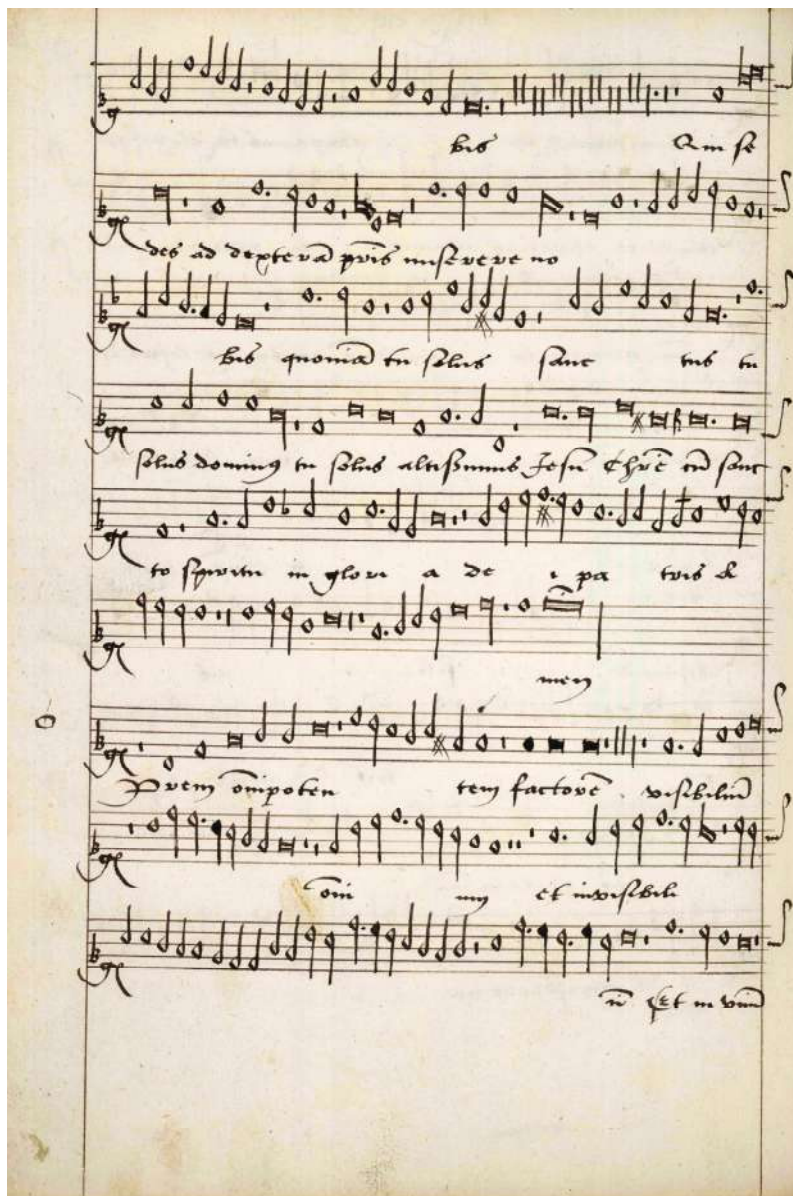 bis Qui se
des ad dexterā pr̄is miserere no
bis quoniā tu solus sanc tus tu
solus dominꝰ tu solus altissimus Jesu Chr̄e cū sanc
to spiritu in glori a de i pa tris &
men
Pr̄em om̄ipoten tem factorē visibiliū
om̄i um et invisibili
ū Et in vnū